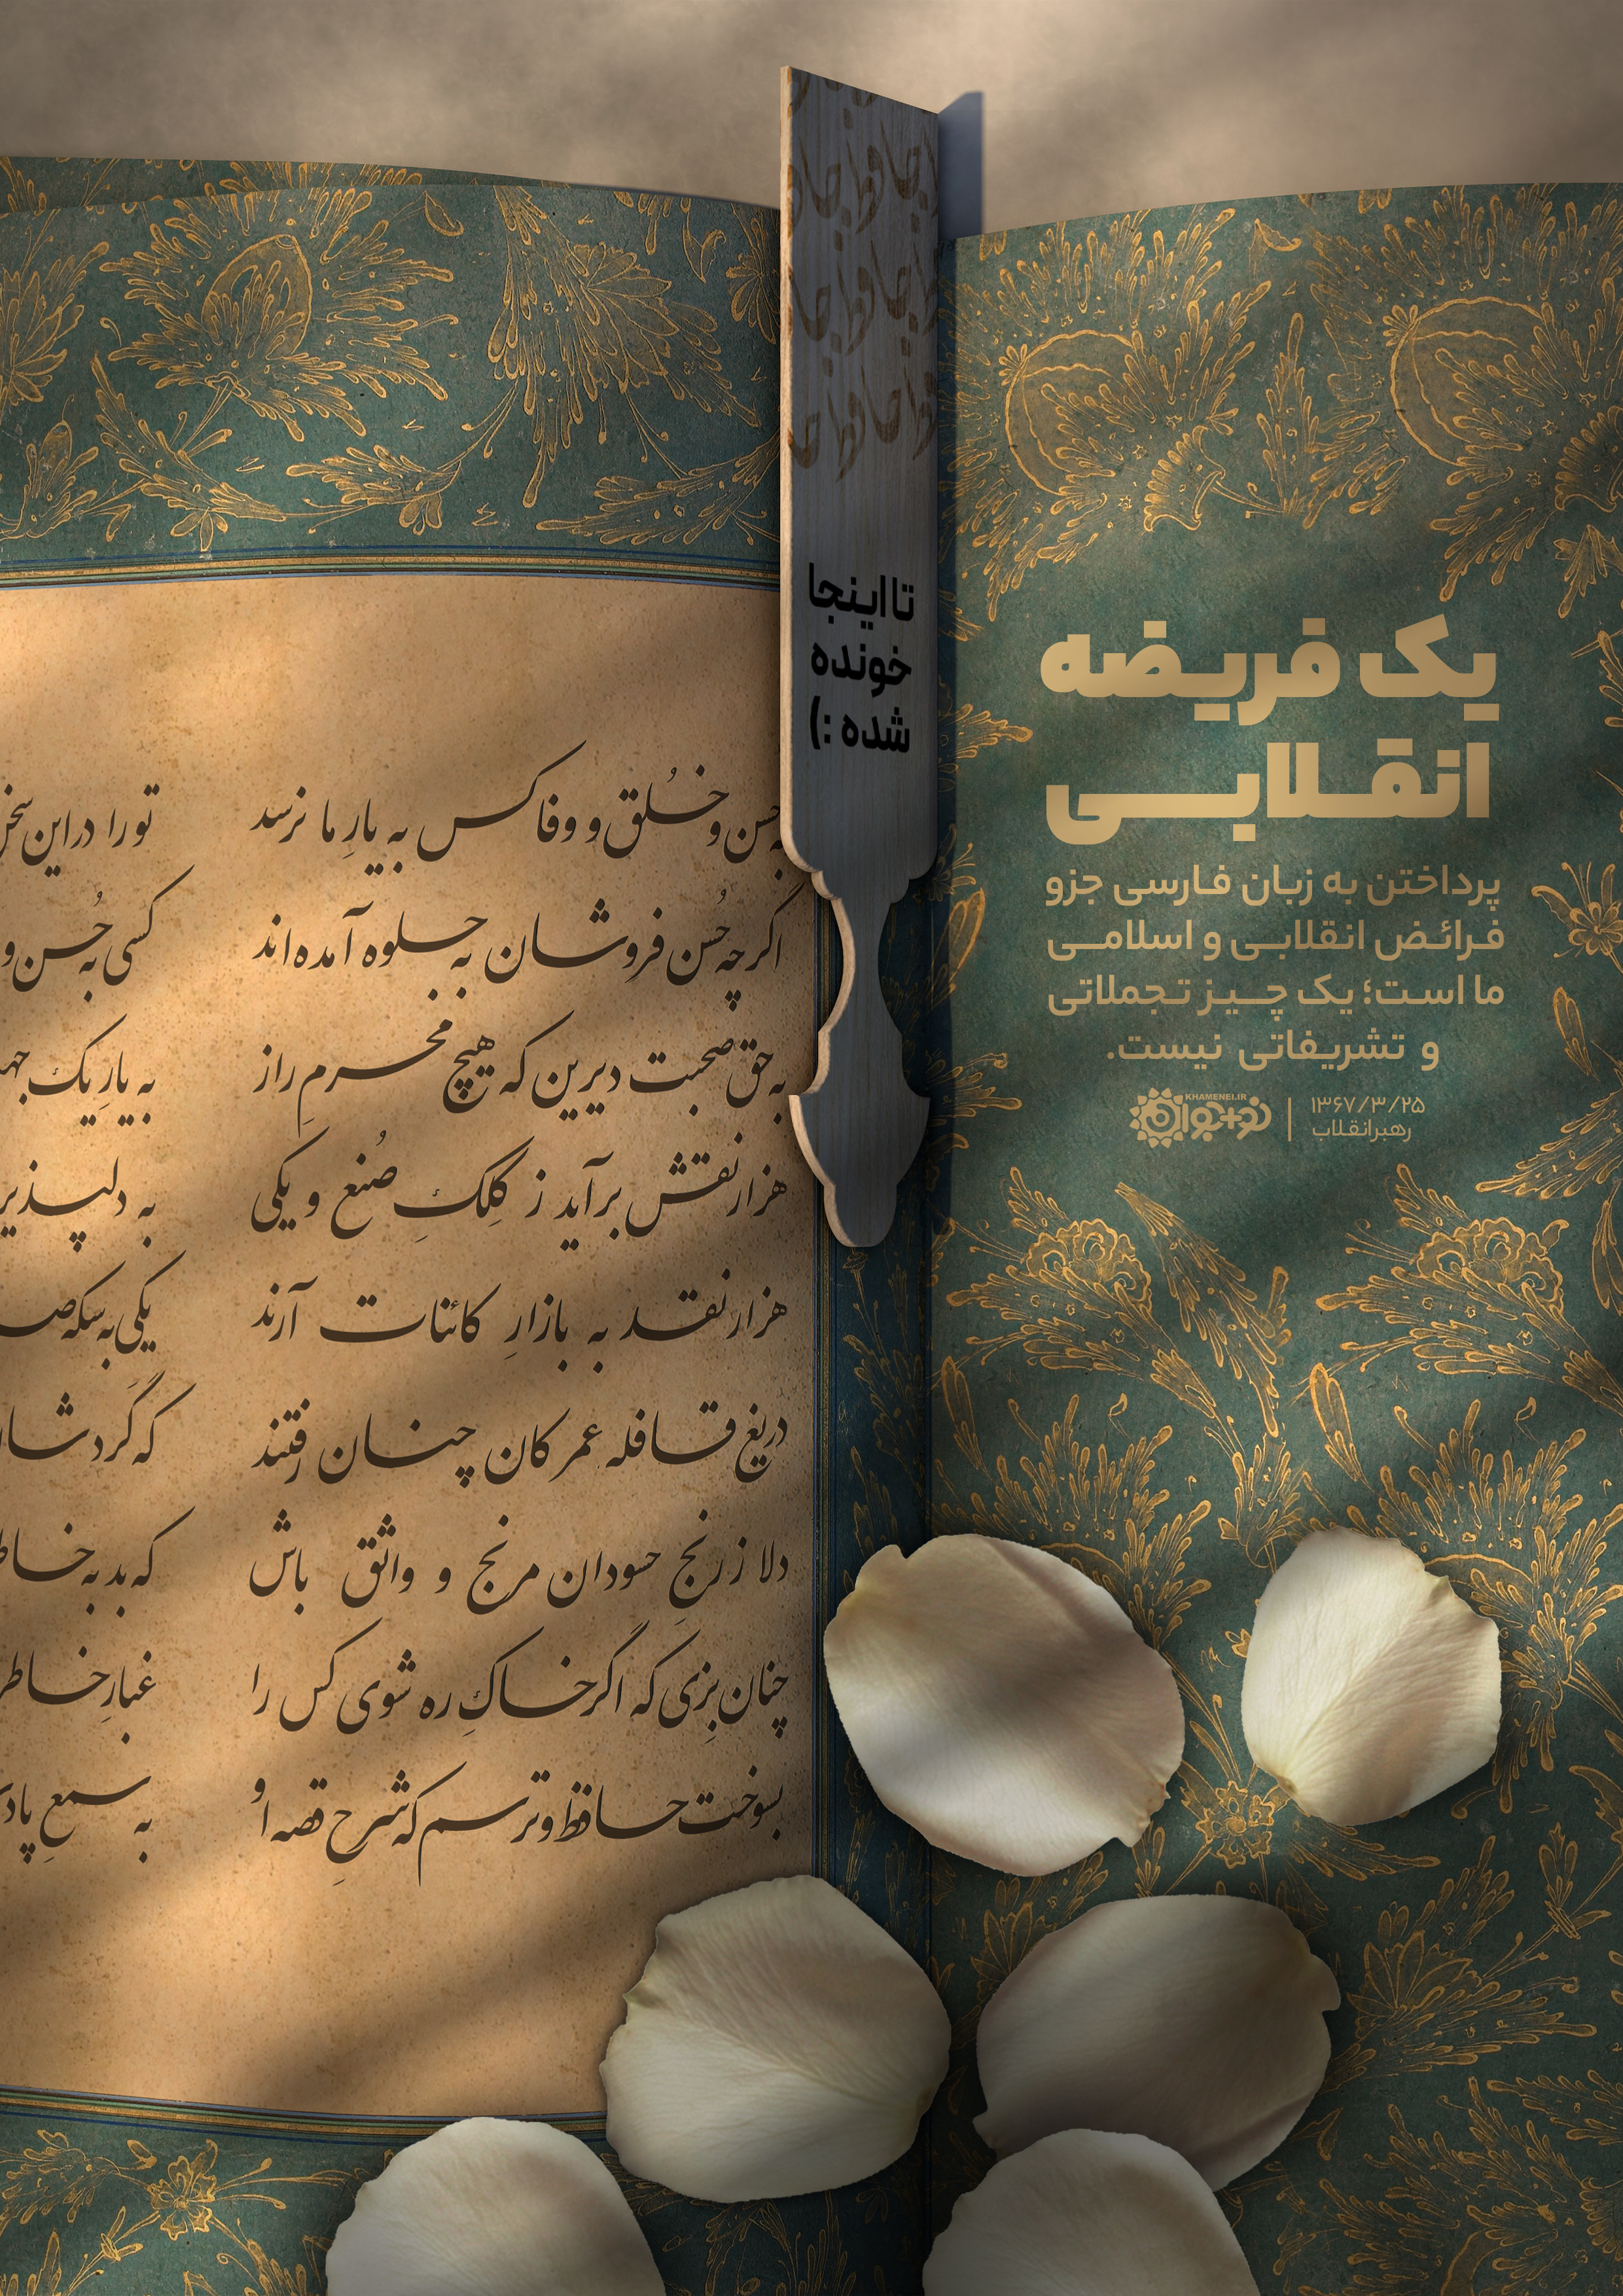 یک فریضه
انقلابی
پرداختن به زبان فارسی جزو
فرائض انقلابی و اسلامی
ما است؛ یک چیز تجملاتی
و تشریفاتی نیست.
۱۳۶۷/۳/۲۵
رهبر انقلاب
KHAMENEI.IR
نو+جوان
حافظ حافظ
حافظ حافظ
حافظ حافظ
تا اینجا
خونده
شده :)
حسن و خُلق و وفا کس به یارِ ما نرسد تو را در این سخن
اگر چه حُسن فروشان به جلوه آمده‌اند کسی به حُسن و
به حق صحبت دیرین که هیچ محرمِ راز به یارِ یک جهت
هزار نقش برآید ز کِلکِ صُنع و یکی به دلپذیر
هزار نقد به بازارِ کائنات آرند یکی به سکه ص
دریغ قافله عمر کان چنان رفتند که گَردشان
دلا ز رنجِ حسودان مرنج و واثق باش که بد به خاطر
چنان بِزی که اگر خاکِ ره شوی کس را غبارِ خاطر
بسوخت حافظ و ترسم که شرحِ قصه اُو به سمعِ پاد